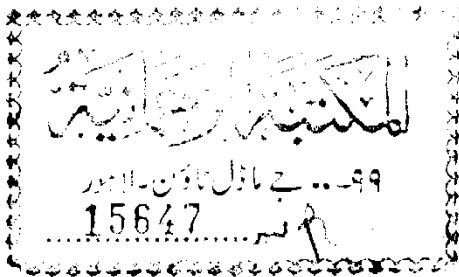 المکتبۃ الرحمانیۃ
۹۹ ... جے ماڈل ٹاؤن۔ لاہور
نمبر 15647